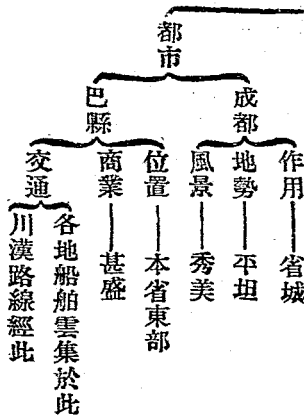 都市
成都
作用
省城
地勢
平坦
風景
秀美
巴縣
位置
本省東部
商業
甚盛
交通
各地船舶雲集於此
川漢路線經此